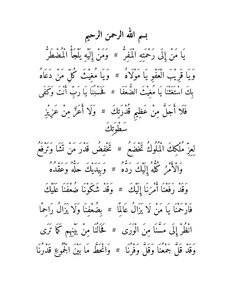 بسم الله الرحمن الرحيم
يَا مَنْ إِلَى رَحْمَتِهِ الْمَفَرُّ * وَمَنْ إِلَيْهِ يَلْجَأُ الْمُضْطَرُّ
وَيَا قَرِيبَ الْعَفْوِ يَا مَوْلَاهُ * وَيَا مُغِيثَ كُلِّ مَنْ دَعَاهُ
بِكَ اسْتَغَثْنَا يَا مُغِيثَ الضُّعَفَا * فَحَسْبُنَا يَا رَبِّ أَنْتَ وَكَفَى
فَلَا أَجَلَّ مِنْ عَظِيمِ قُدْرَتِكَ * وَلَا أَعَزَّ مِنْ عَزِيزِ
سَطْوَتِكَ
لِعِزِّ مُلْكِكَ الْمُلُوكُ تَخْضَعُ * تَخْفِضُ قَدْرَ مَنْ تَشَا وَتَرْفَعُ
وَالْأَمْرُ كُلُّهُ إِلَيْكَ رَدُّهُ * وَبِيَدَيْكَ حَلُّهُ وَعَقْدُهُ
وَقَدْ رَفَعْنَا أَمْرَنَا إِلَيْكَ * وَقَدْ شَكَوْنَا ضُعْفَنَا عَلَيْكَ
فَارْحَمْنَا يَا مَنْ لَا يَزَالُ عَالِمًا * بِضُعْفِنَا وَلَا يَزَالُ رَاحِمًا
انْظُرْ إِلَى مَسَّنَا مِنَ الْوَرَى * فَحَالُنَا مِنْ بَيْنِهِمْ كَمَا تَرَى
وَقَدْ قَلَّ جَمْعُنَا وَقَلَّ وَفْرُنَا * وَانْحَطَّ مَا بَيْنَ الْجُمُوعِ قَدْرُنَا